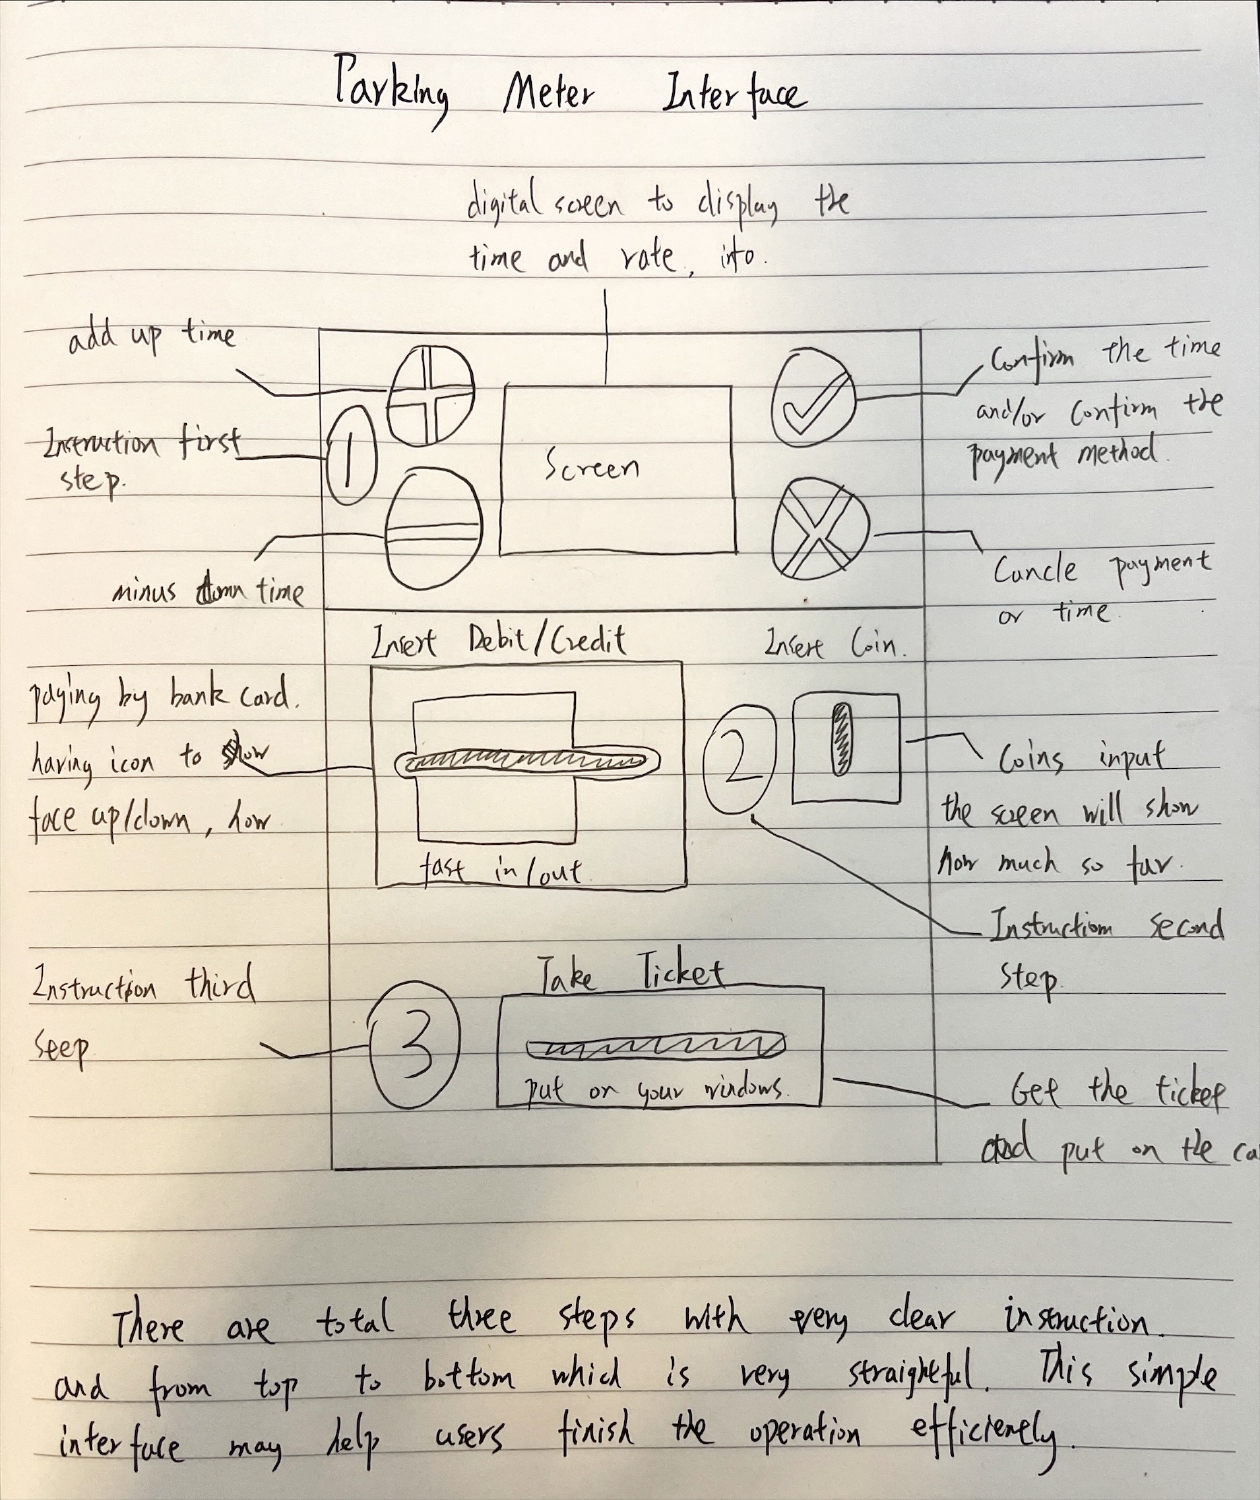 Parking Meter Interface
digital screen to display the
time and rate, info.
add up time
Instruction first
step.
minus down time
1
Screen
Confirm the time
and/or confirm the
payment method.
Cancle payment
or time.
Insert Debit/Credit
Insert Coin.
paying by bank card.
having icon to show
face up/down, how
fast in/out.
2
Coins input
the screen will show
how much so far.
Instruction second
step.
Instruction third
seep
3
Take Ticket
put on your windows.
Get the ticket
and put on the ca
There are total three steps with very clear instruction.
and from top to bottom which is very straightful. This simple
interface may help users finish the operation efficiently.